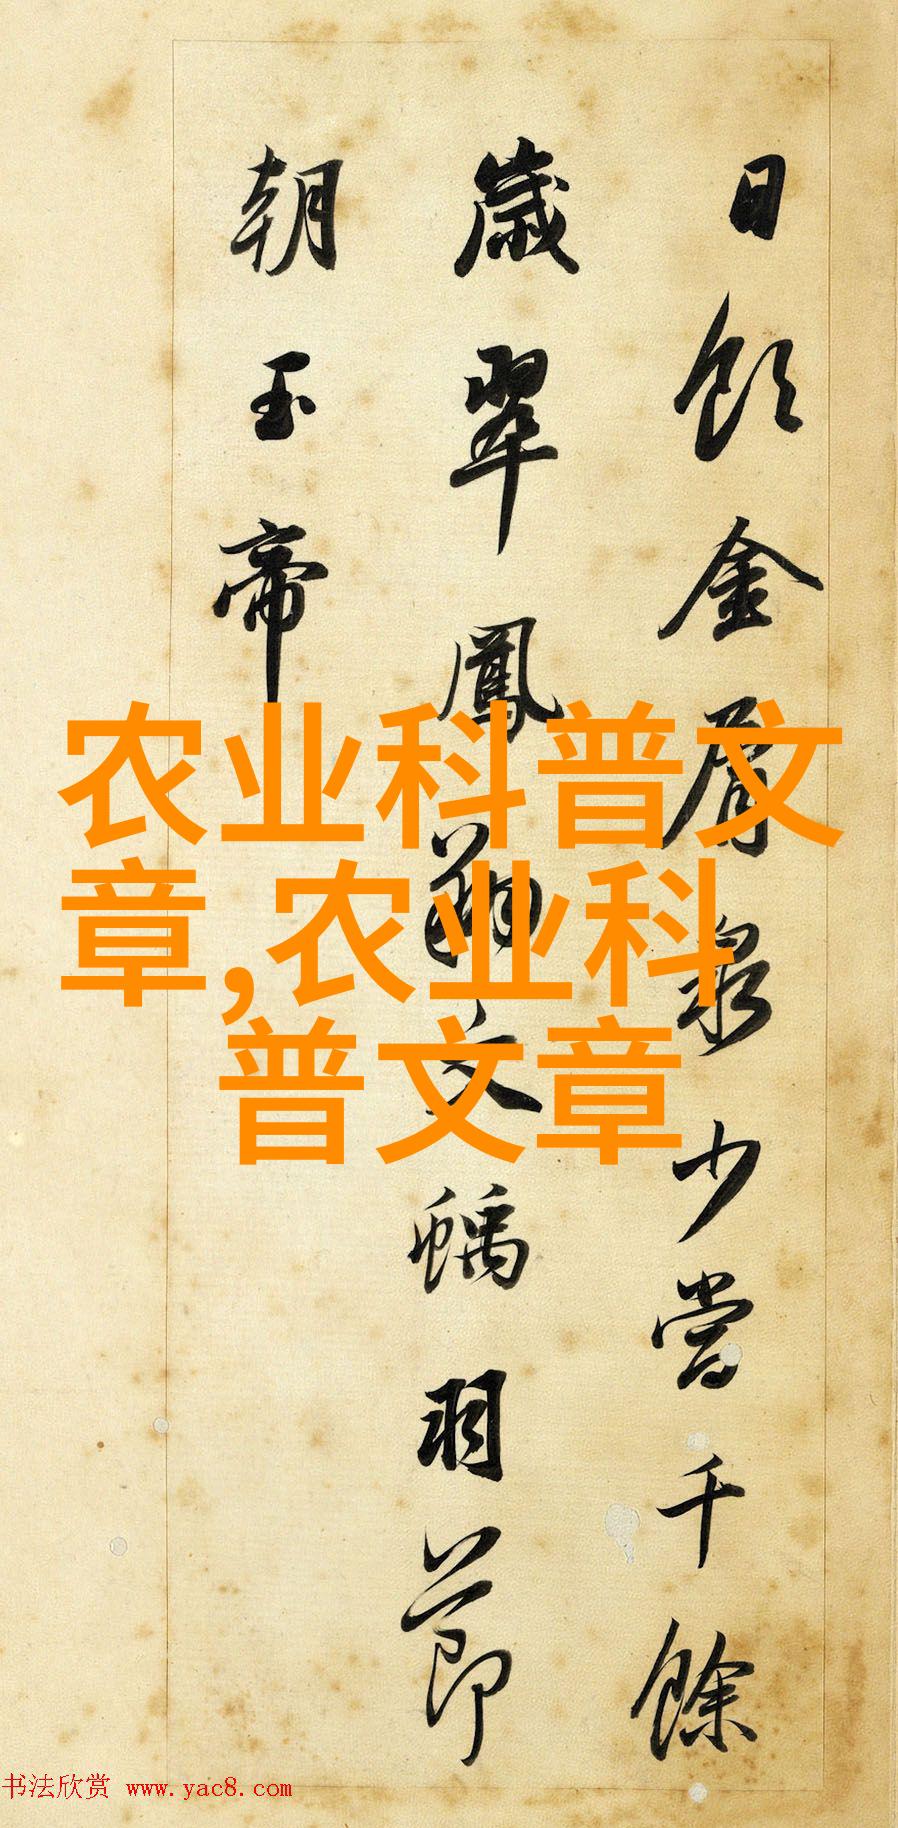 日飲金屑泉少當千餘
歲翠鳳翔文螭羽節
朝玉帝
农业科普文
章,农业科
普文章
书法欣赏 www.yac8.com